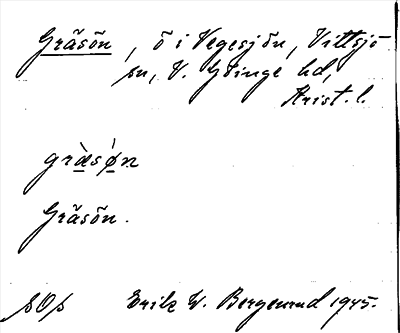 Gräsön, ö i Vegesjön, Vittsjö
sn, V. Göinge hd,
Krist. l.
gràsǿn
Gräsön.
sOs Erik W. Bergenrud 1945.